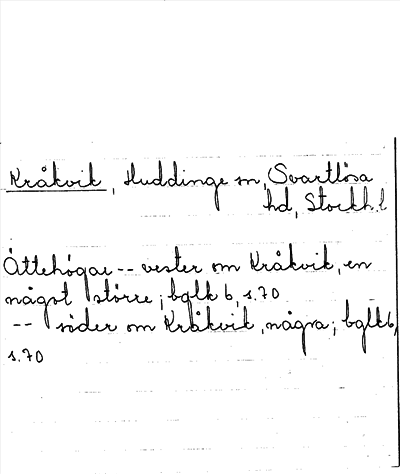 Kråkvik, Huddinge sn, Svartlösa
hd, Stockh.l
Ättehögar -- vester om Kråkvik, en
något större; bglk 6, s. 70
-- söder om Kråkvik, några; bglk 6,
s. 70